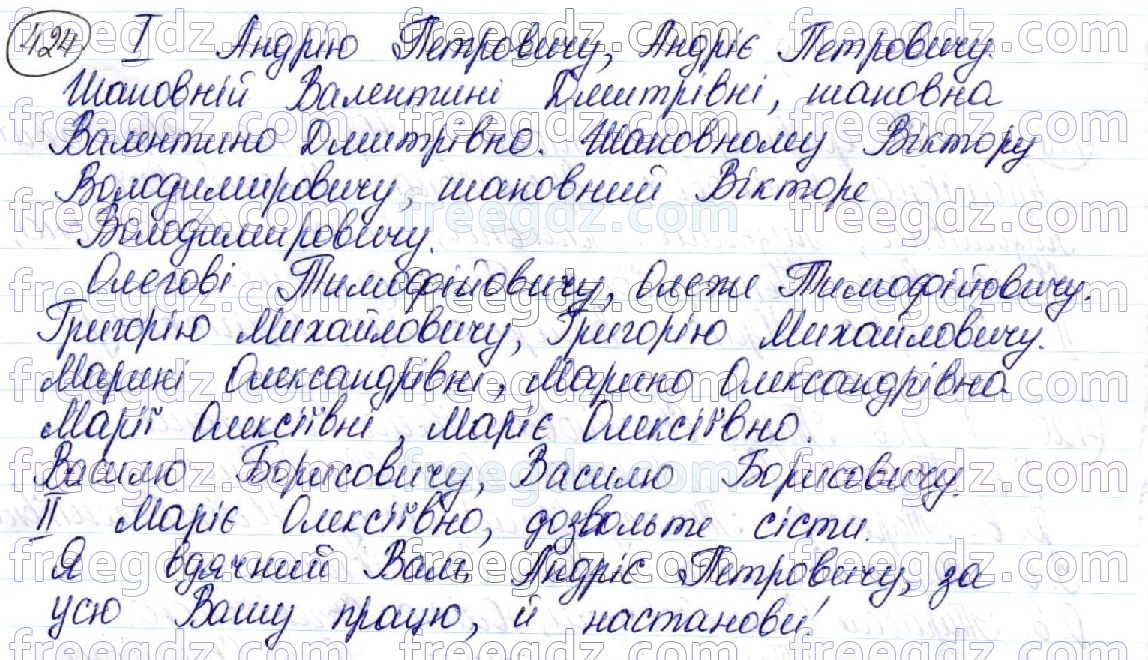 424 I Андрію Петровичу, Андріє Петровичу.
Шановній Валентині Дмитрівні, шановна
Валентино Дмитрівно. Шановному Віктору
Володимировичу, шановний Вікторе
Володимировичу.
Олегові Тимофійовичу, Олеже Тимофійовичу.
Григорію Михайловичу, Григорію Михайловичу.
Марині Олександрівні, Марино Олександрівно
Марії Олексіївні, Маріє Олексіївно.
Василю Борисовичу, Василю Борисовичу.
II Маріє Олексіївно, дозвольте сісти.
Я вдячний Вам, Андріє Петровичу, за
усю Вашу працю, й настанови!
freegdz.com